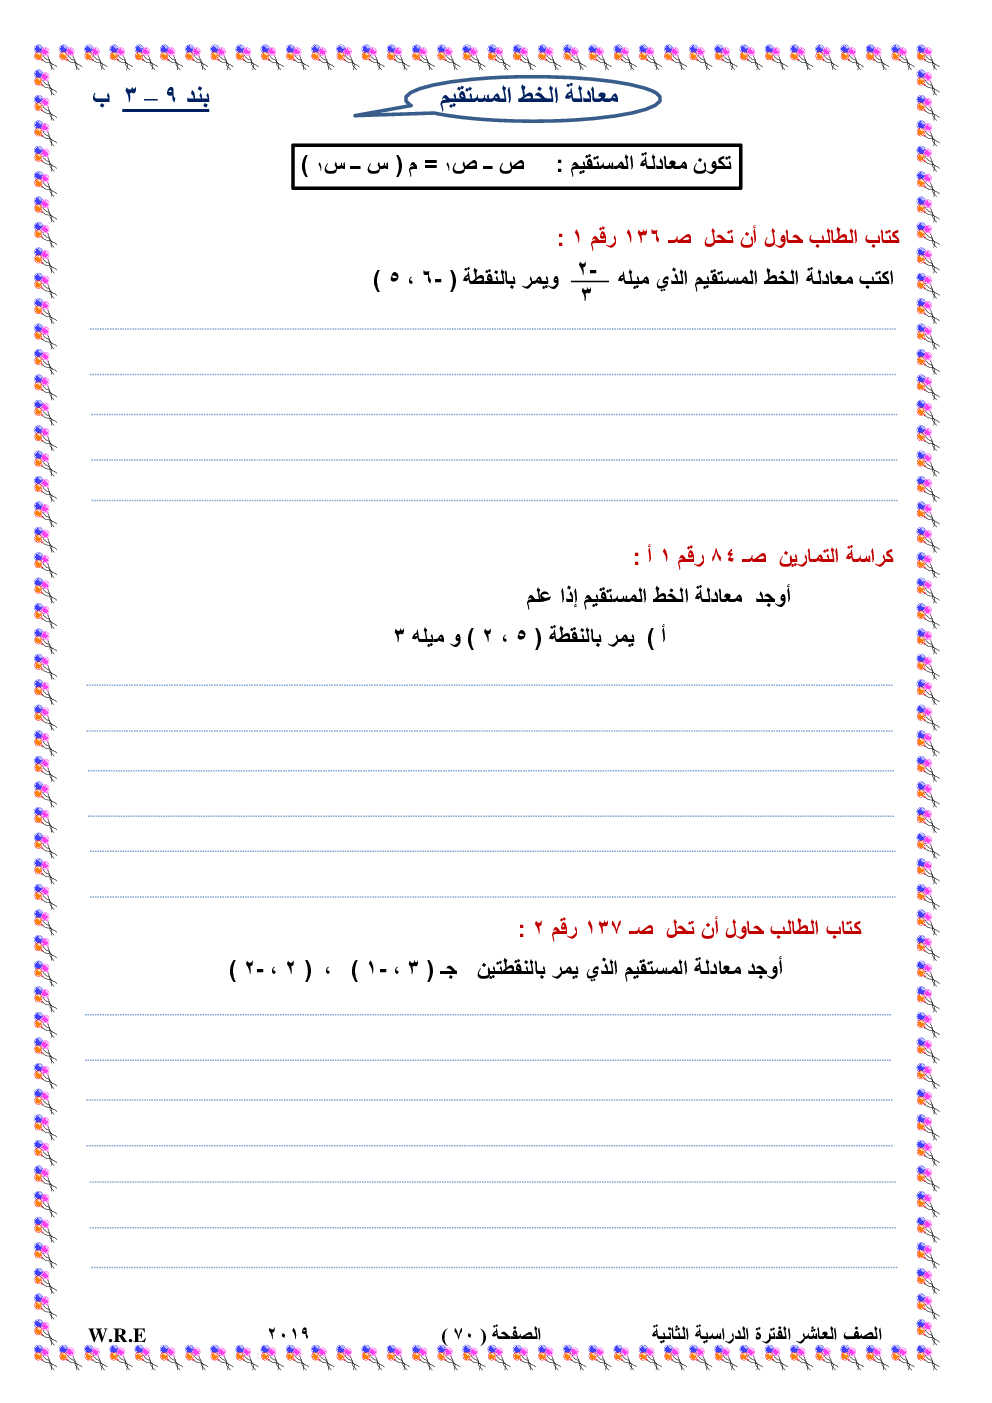 معادلة الخط المستقيم
بند ٩ – ٣ ب
تكون معادلة المستقيم : ص – ص₁ = م ( س – س₁ )
كتاب الطالب حاول أن تحل صـ ١٣٦ رقم ١ :
اكتب معادلة الخط المستقيم الذي ميله -٢/٣ ويمر بالنقطة ( -٦ ، ٥ )
كراسة التمارين صـ ٨٤ رقم ١ أ :
أوجد معادلة الخط المستقيم إذا علم
أ ) يمر بالنقطة ( ٥ ، ٢ ) و ميله ٣
كتاب الطالب حاول أن تحل صـ ١٣٧ رقم ٢ :
أوجد معادلة المستقيم الذي يمر بالنقطتين جـ ( ٣ ، -١ ) ، ( ٢ ، -٢ )
الصف العاشر الفترة الدراسية الثانية الصفحة ( ٧٠ ) ٢٠١٩ W.R.E